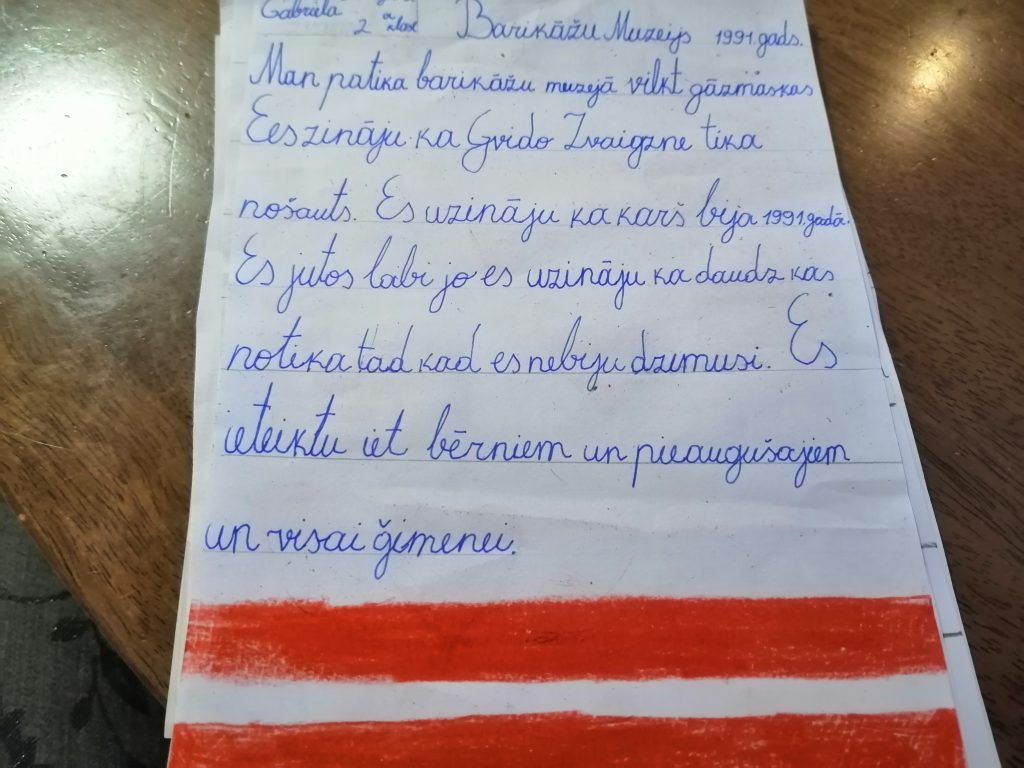 Gabriela
2 a klase Barikāžu Muzejs 1991.gads.
Man patika barikāžu muzejā vilkt gāzmaskas
Ees zināju ka Gvido Zvaigzne tika
nošauts. Es uzināju ka karš bija 1991.gadā.
Es jutos labi jo es uzināju ka daudz kas
notika tad kad es nebiju dzimusi. Es
ieteiktu iet bērniem un pieaugušajiem
un visai ģimenei.